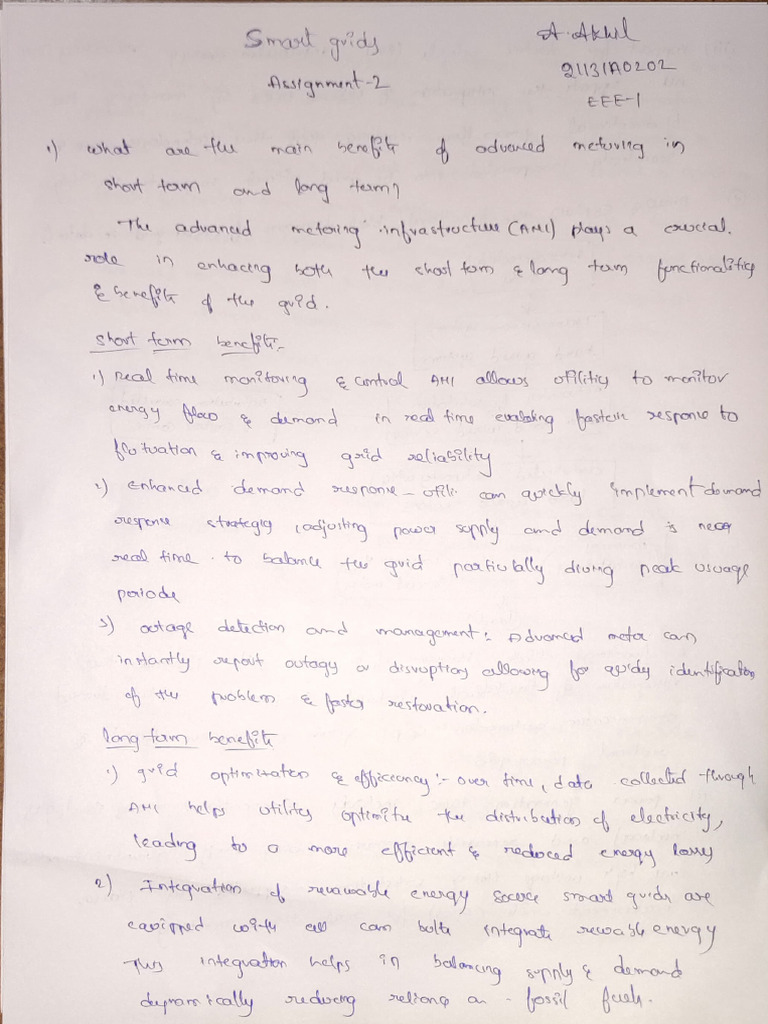 Smart grids
A. Akhil
Assignment-2
21131A0202
EEE-1
1) what are the main benefits of advanced metering in
short term and long term?
The advanced metering infrastructure (AMI) plays a crucial
role in enhacing both the short term & long term functionalities
& benefits of the grid.
short term benefits:-
1) real time monitoring & control AMI allows utilities to monitor
energy flow & demand in real time response to
& improving grid reliability
2) Enhanced demand response - utili. can quickly implement demand
response strategies, adjusting power supply and demand is near
real time. to balance the grid during peak usuage
periods
3) outage detection and management: Advanced meter can
instantly report outages or disruptions allowing for identification
of the problem & faster restoration.
long term benefits
1) grid optimization & efficiency:- over time, data collected through
AMI helps utility optimize the distribution of electricity,
leading to a more efficient & reduced energy losses
2) Integration of energy source smart grids are
with can integrate energy
This integration helps in balancing supply & demand
dynamically reducing on - fossil fuels.